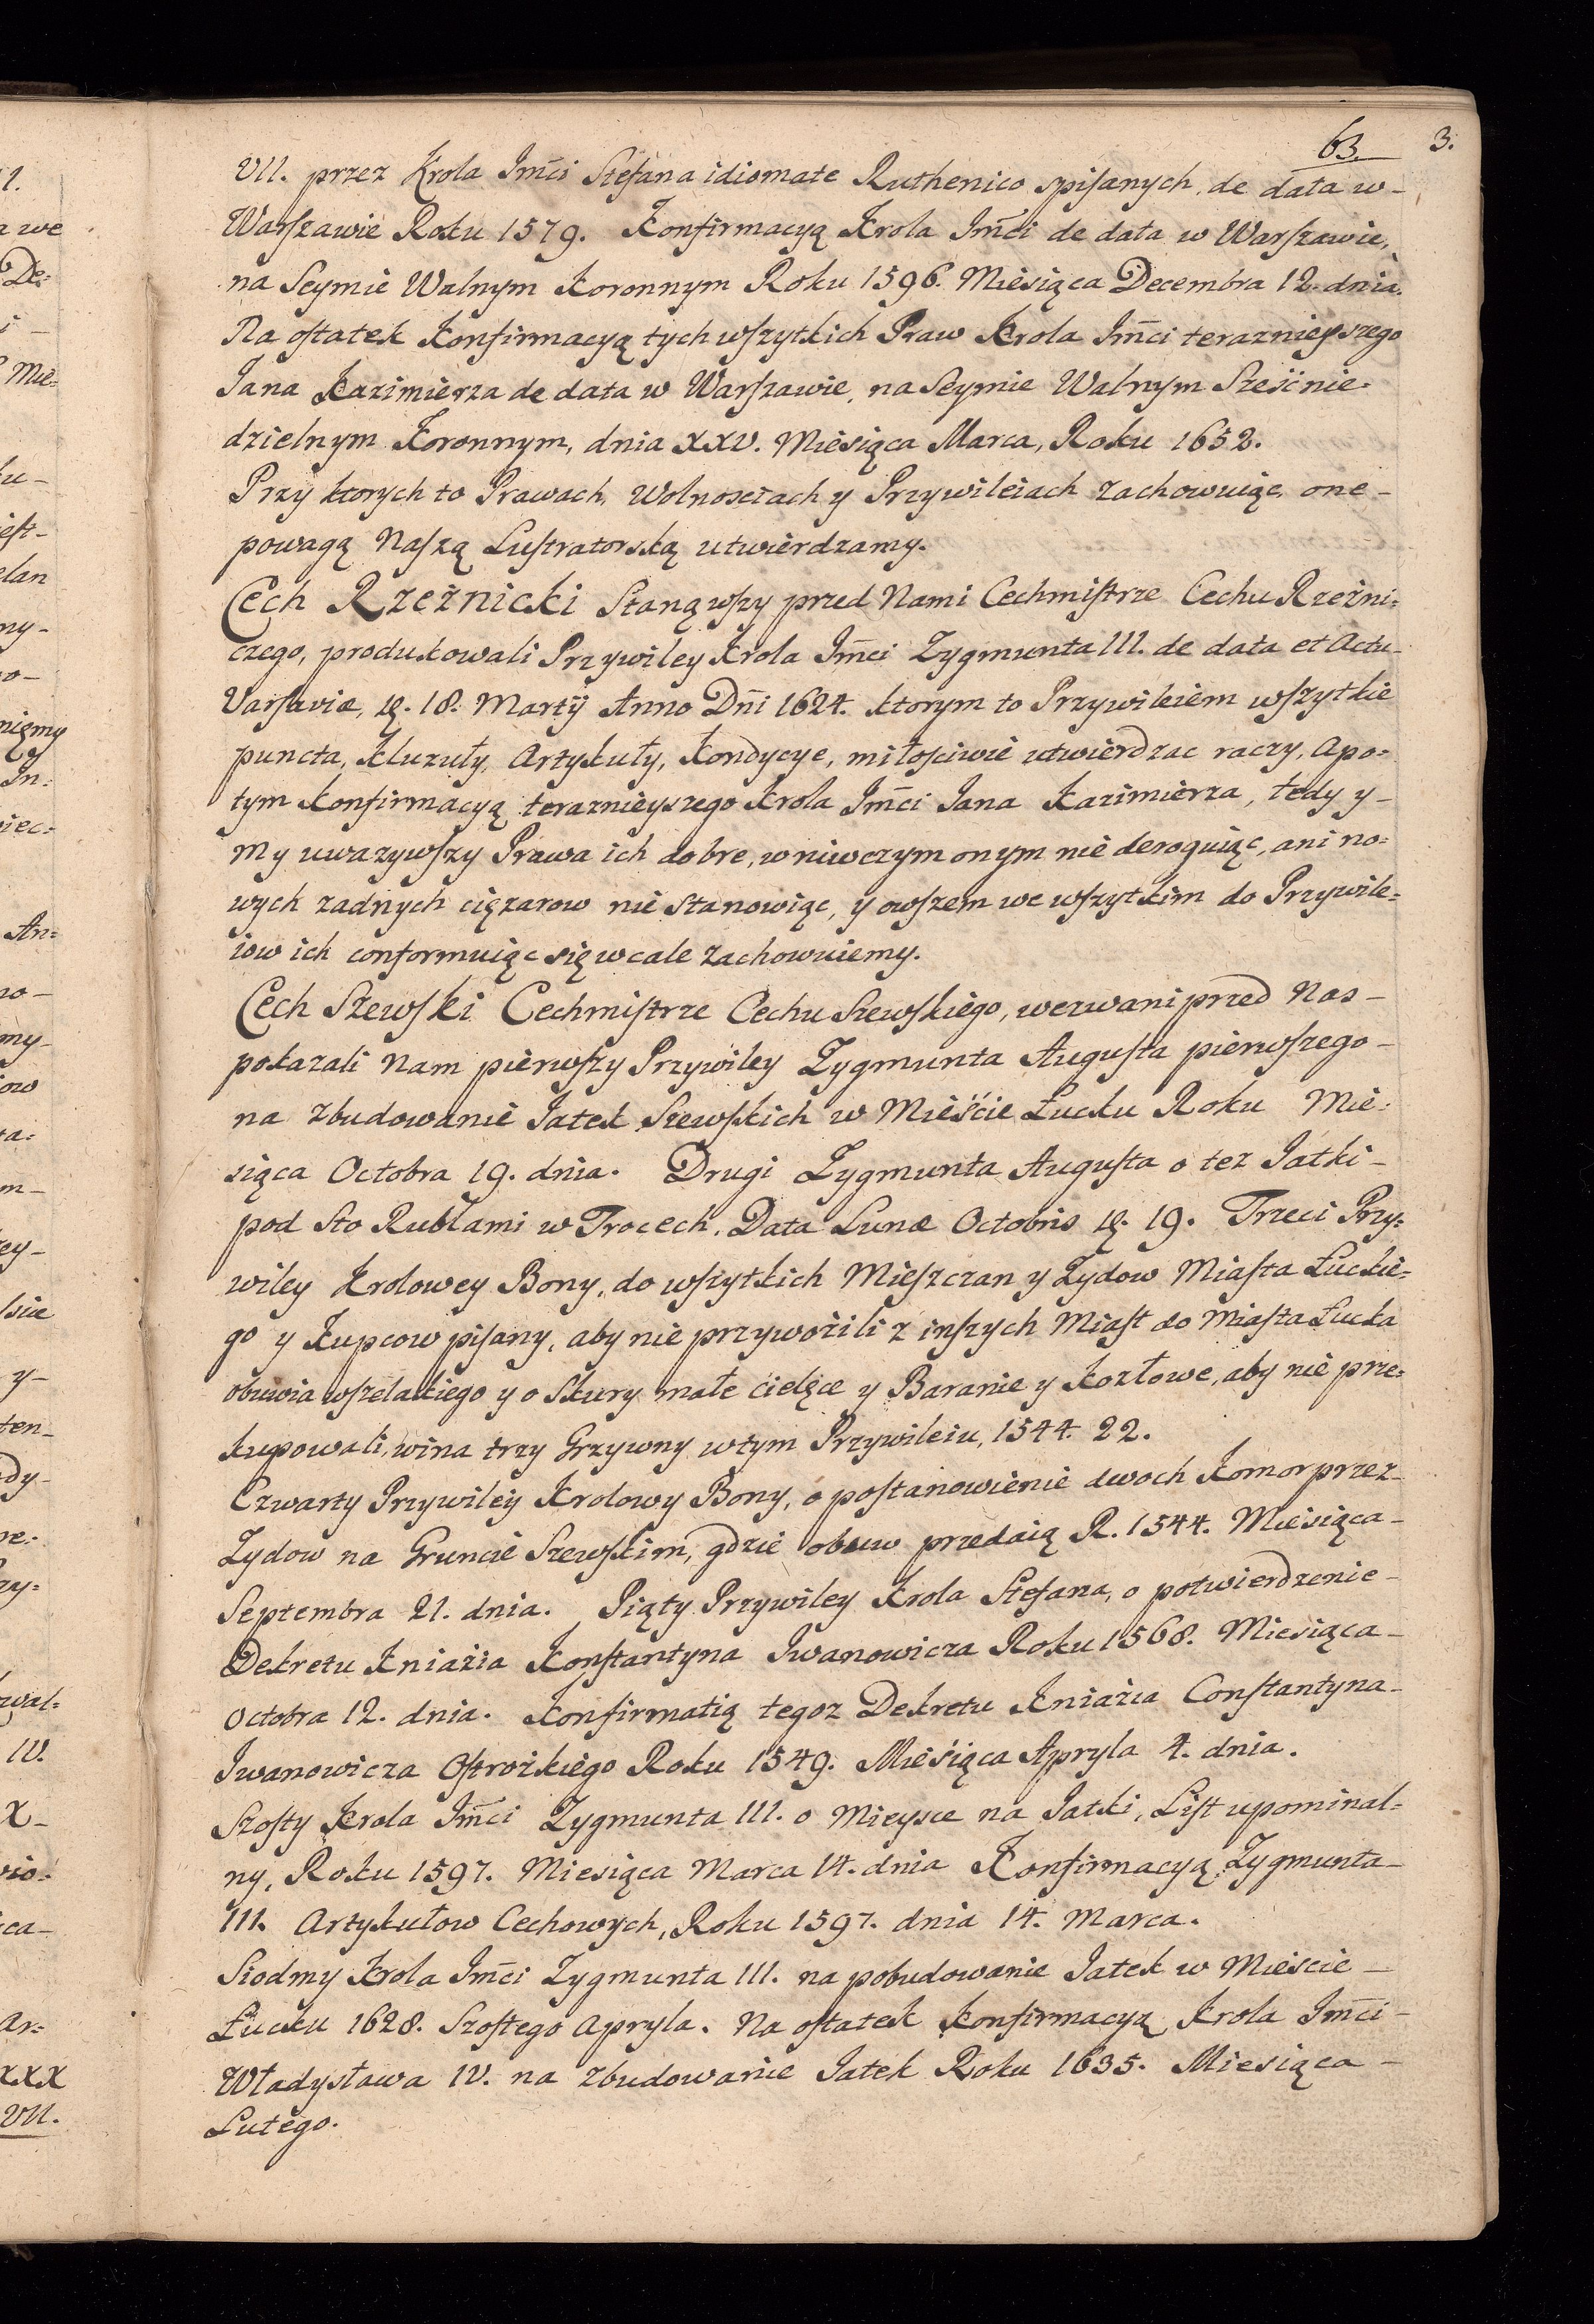 63. 3.
VII. przez Krola Jm̄ci Stefana idiomate Ruthenico spisanych, de data w-
Warszawie Roku 1579. Konfirmacyą Krola Jm̄ci de data w Warszawie,
na Seymie Walnym Koronnym Roku 1596. Miesiąca Decembra 12. dnia.
Na ostatek Konfirmacyą tych wszytkich Praw Krola Jm̄ci teraznieyszego
Jana Kazimierza de data w Warszawie, na Seymie Walnym Sześćnie=
dzielnym Koronnym, dnia XXV. Miesiąca Marca, Roku 1652.
Przy ktorych to Prawach, Wolnosciach y Przywileiach zachowuiąc, one-
powagą Naszą Lustratorską utwierdzamy.
Cech Rzeźnicki Stanąwszy przed Nami Cechmistrze Cechu Rzeźni=
czego, produkowali Przywiley Krola Jm̄ci Zygmunta III. de data et Actu-
Varsaviæ, D. 18. Martij Anno Dn̄i 1624. ktorym to Przywileiem wszytkie
puncta, Kluzuły, Artykuły, Kondycye, miłościwie utwierdzac raczy, apo=
tym Konfirmacyą teraznieyszego Krola Jm̄ci Jana Kazimierza, tedy y-
my uwazywszy Prawa ich dobre, wniwczym onym nie deroguiąc, ani no=
wych zadnych cięzarow nie stanowiąc, y owszem we wszytkim do Przywile=
iow ich conformuiąc się wcale zachowuiemy.
Cech Szewski Cechmistrze Cechu Szewskiego, wezwani przed Nas-
pokazali Nam pierwszy Przywiley Zygmunta Augusta pierwszego-
na zbudowanie Jatek Szewskich w Mieście Łucku Roku Mie=
siąca Octobra 19. dnia. Drugi Zygmunta Augusta o tez Jatki-
pod Sto Rubłami w Trocech. Data Lunæ Octobris D. 19. Trzeci Przy=
wiley Krolowey Bony, do wszytkich Mieszczan y Zydow Miasta Łuckie=
go y Kupcow pisany, aby nie przywozili z inszych Miast do Miasta Łucka
obuwia wszelakiego y o Skury małe cielęce y Baranie y Kozłowe, aby nie prze=
kupowali, wina trzy Grzywny w tym Przywileiu, 1544. 22.
Czwarty Przywiley Krolowy Bony, o postanowienie dwoch Komor przez-
Zydow na Gruncie Szewskim, gdzie obuw przedaią R. 1544. Miesiąca-
Septembra 21. dnia. Piąty Przywiley Krola Stefana, o potwierdzenie-
Dekretu Kniaźia Konstantyna Iwanowicza Roku 1568. Miesiąca-
Octobra 12. dnia. Konfirmatią tegoz Dekretu Kniaźia Constantyna-
Iwanowicza Ostrożkiego Roku 1549. Mieśiąca Apryla 4. dnia.
Szosty Krola Jm̄ci Zygmunta III. o Mieysce na Jatki, List upominal=
ny, Roku 1597. Miesiąca Marca 14. dnia Konfirmacyą Zygmunta-
III. Artykułow Cechowych, Roku 1597. dnia 14. Marca.
Siodmy Krola Jm̄ci Zygmunta III. na pobudowanie Jatek w Miescie-
Łucku 1628. Szostego Apryla. Na ostatek Konfirmacyą Krola Jm̄ci-
Władysława IV. na zbudowanie Jatek Roku 1635. Miesiąca-
Lutego.